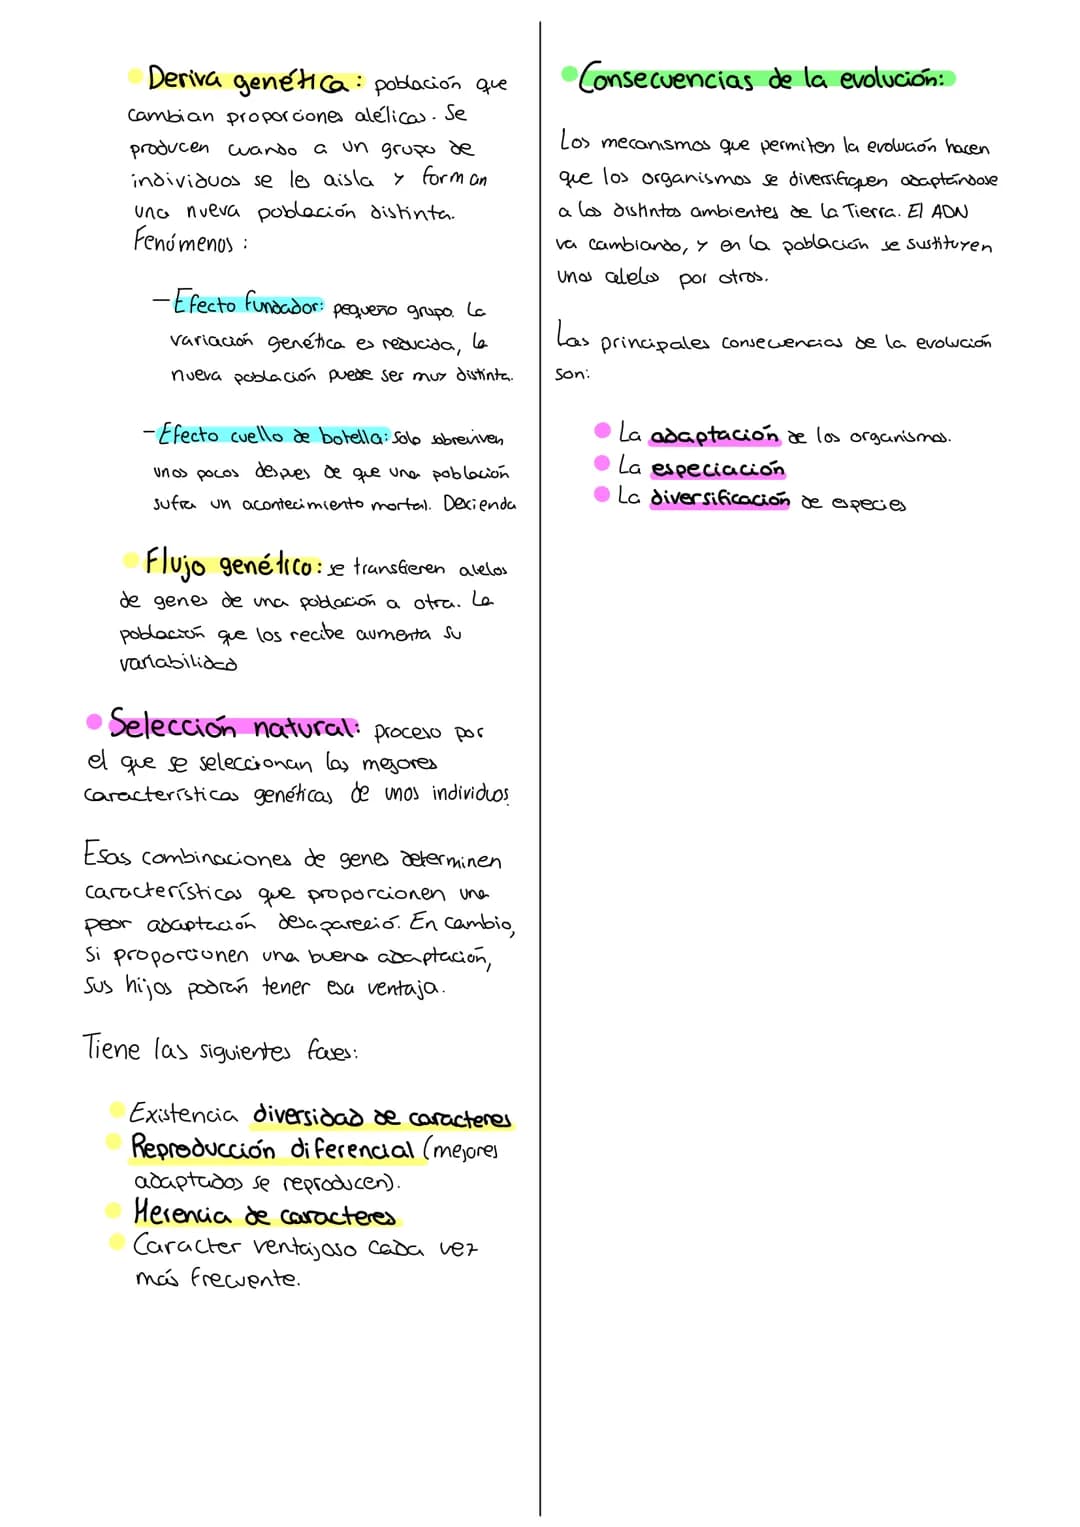 Deriva genética: población que
cambian proporciones alélicas. Se
producen cuando a un grupo de
individuos se les aisla y forman
una nueva población distinta.
Fenómenos:
- Efecto fundador: pequeño grupo. La
variación genética es reducida, la
nueva población puede ser muy distinta.
- Efecto cuello de botella: Solo sobreviven
unos pocos despues de que una población
sufra un acontecimiento mortal. Decienda
Flujo genético: se transfieren alelos
de genes de una población a otra. La
población que los recibe aumenta su
variabilidad
Selección natural: proceso por
el que se seleccionan las mejores
características genéticas de unos individuos
Esas combinaciones de genes determinen
características que proporcionen una
peor adaptación desapareció. En cambio,
si proporcionen una buena adaptación,
sus hijos podrán tener esa ventaja.
Tiene las siguientes fases:
Existencia diversidad de caracteres
Reproducción diferencial (mejores
adaptados se reproducen).
Herencia de caracteres
Caracter ventajoso cada vez
más frecuente.
Consecuencias de la evolución:
Los mecanismos que permiten la evolución hacen
que los organismos se diversifiquen adaptándose
a los distintos ambientes de la Tierra. El ADN
va cambiando, y en la población se sustituyen
unos alelos por otros.
Las principales consecuencias de la evolución
son:
La adaptación de los organismos.
La especiación
La diversificación de especies